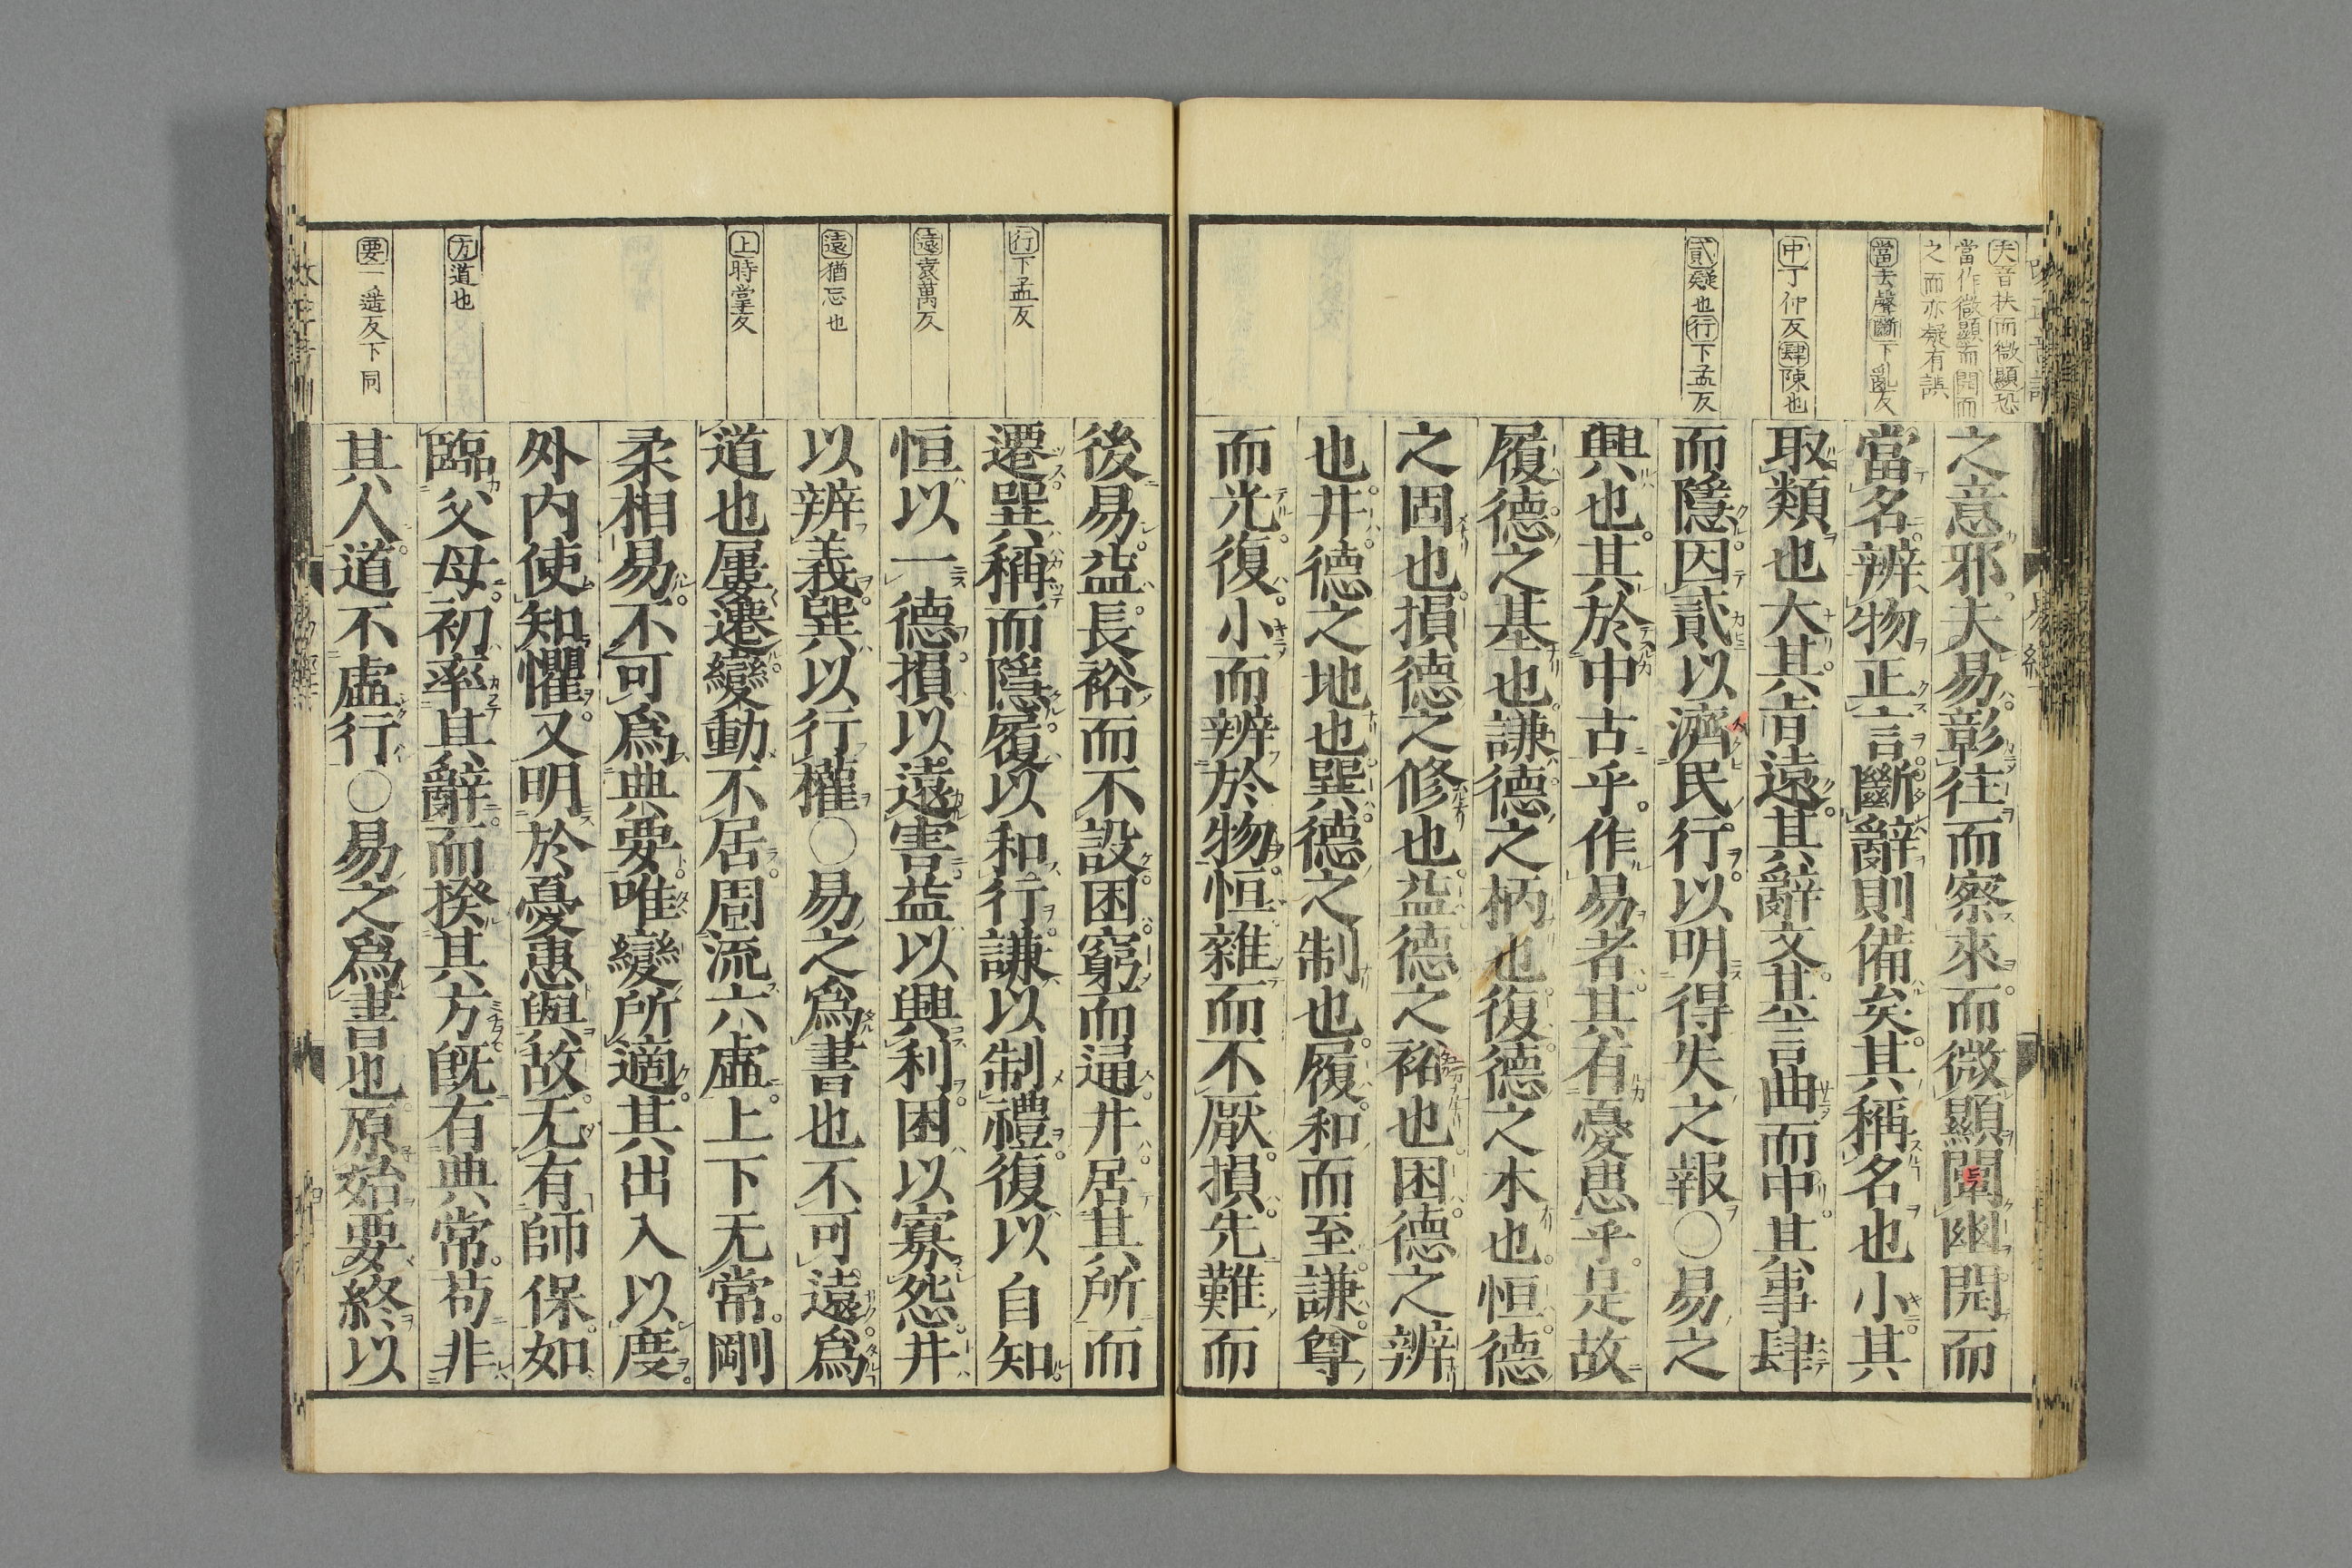 夫音扶而微顯恐
當作微顯而開而
之而亦疑有誤
當去聲斷丁亂反
中丁仲反肆陳也
貳疑也行下孟反
之意邪夫易彰往而察來而微顯闡幽開而
當名辨物正言斷辭則備矣其稱名也小其
取類也大其旨遠其辭文其言曲而中其事肆
而隱因貳以濟民行以明得失之報○易之
興也其於中古乎作易者其有憂患乎是故
履德之基也謙德之柄也復德之本也恒德
之固也損德之修也益德之裕也困德之辨
也井德之地也巽德之制也履和而至謙尊
而光復小而辨於物恒雜而不厭損先難而
行下孟反
遠袁萬反
遠猶忘也
上時掌反
方道也
要一遙反下同
後易益長裕而不設困窮而通井居其所而
遷巽稱而隱履以和行謙以制禮復以自知
恒以一德損以遠害益以興利困以寡怨井
以辨義巽以行權○易之爲書也不可遠爲
道也屢遷變動不居周流六虛上下无常剛
柔相易不可爲典要唯變所適其出入以度
外內使知懼又明於憂患與故无有師保如
臨父母初率其辭而揆其方旣有典常苟非
其人道不虛行○易之爲書也原始要終以